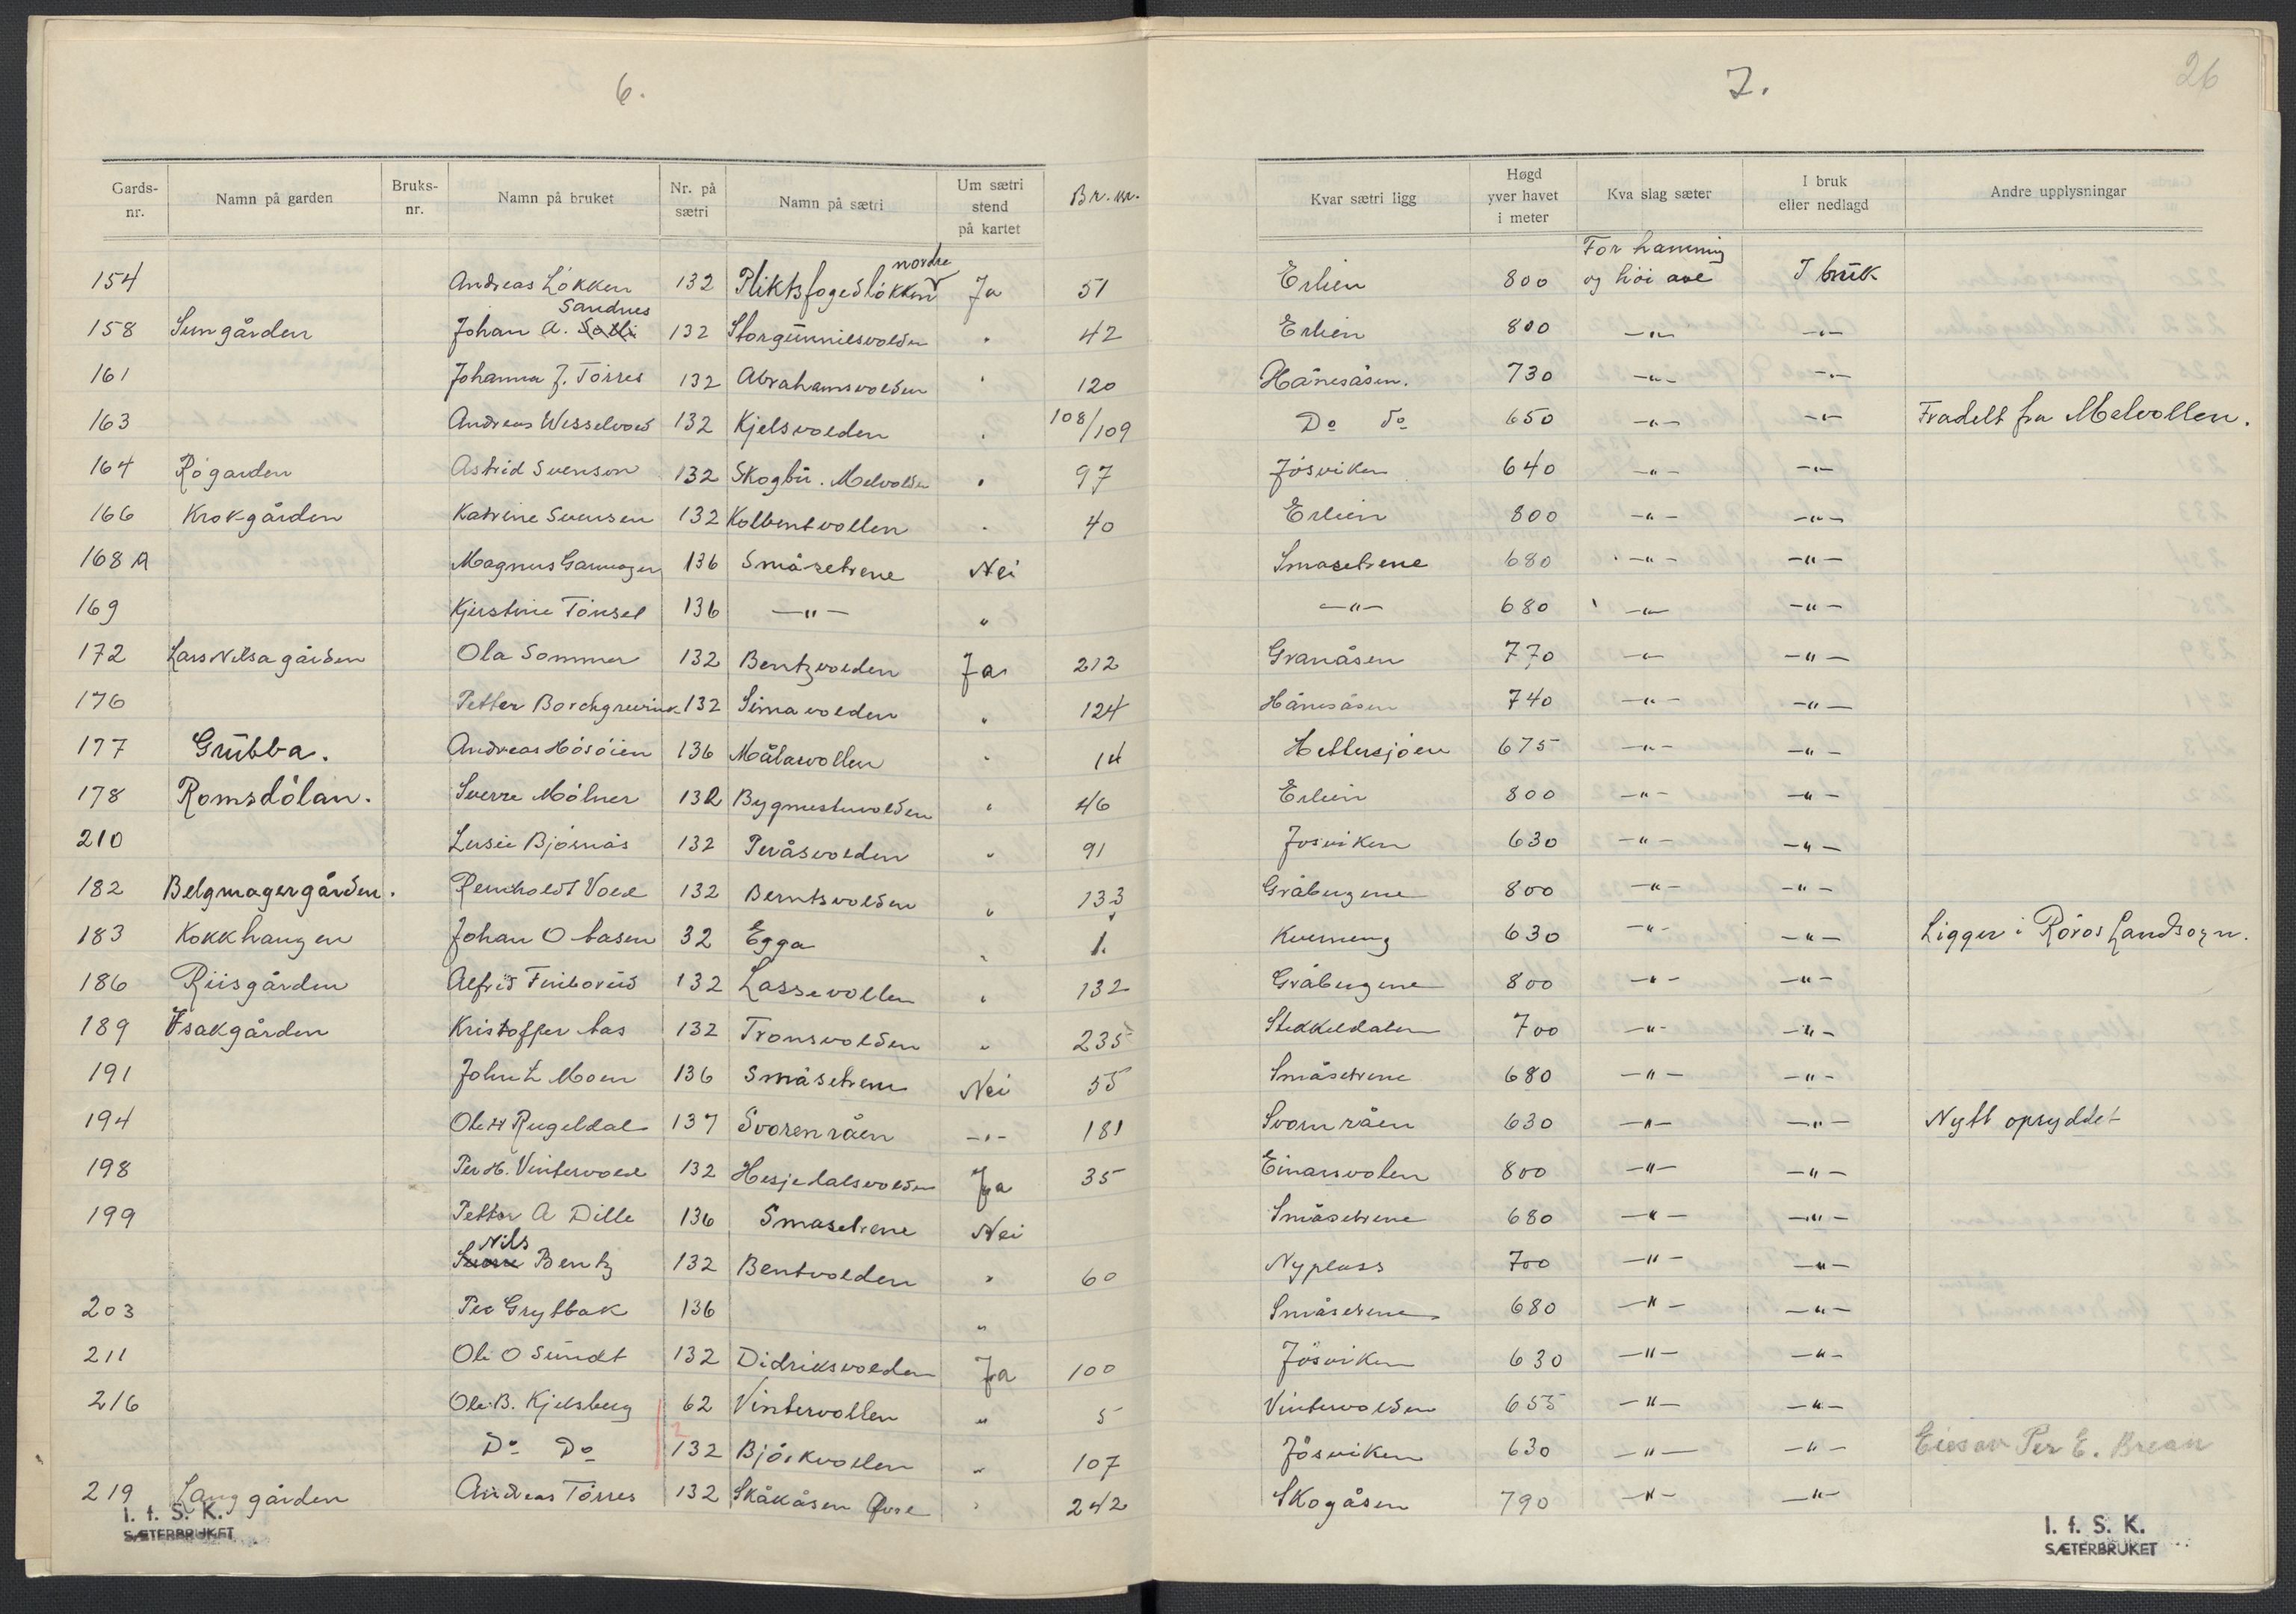 6.
Gards-nr. Namn på garden Bruks-nr. Namn på bruket Nr. på sætri Namn på sætri Um sætri stend på kartet Br. nr.
154 Andreas Lökken 132 Pliktsfogedlökken nordre Ja 51
158 Sumgården Johan A. Sandnes 132 Storgunnilsvolden " 42
161 Johanna J. Törres 132 Abrahamsvolden " 120
163 Andreas Wesselvold 132 Kjelsvolden " 108/109
164 Rögarden Astrid Svenson 132 Skogbu. Melvolden " 97
166 Krokgården Katrine Svensen 132 Kolbentvollen " 40
168 A Magnus 136 Småsetrene Nei
169 Kjerstine Tönsel 136 —"— "
172 Lars Nilsa gården Ola Sommer 132 Bentzvolden Ja 212
176 Petter Borchgrevink 132 Simavolden " 124
177 Grubba. Andreas Hösöien 136 Målarvollen " 14
178 Romsdölan. Sverre Mölner 132 Bygmestervolden " 46
210 Lusie Björnås 132 Peråsvolden " 91
182 Belgmagergården. Reinholdt Vold 132 Berntsvolden " 133
183 Kokkhaugen Johan O Aasen 32 Egga " 1.
186 Riisgården Alfrid Finborud 132 Lassevollen " 132
189 Isakgården Kristoffer Aas 132 Tronsvolden " 235
191 John L Moen 136 Småsetrene Nei 55
194 Ole H Rugeldal 137 Svorenråen —"— 181
198 Per H. Vintervold 132 Hesjedalsvolden Ja 35
199 Petter A Dille 136 Smasetrene Nei
Nils Bentz 132 Bentvolden " 60
203 Peo Grytbak 136 "
211 Ole O Sundt 132 Didriksvolden Ja 100
216 Ole B. Kjelsberg 62 Vintervollen " 5
Do Do 132 Björkvollen " 107
219 Langgården Andreas Törres 132 Skåkåsen Övre " 242
I. f. S. K.
SÆTERBRUKET
7.
26
Kvar sætri ligg Høgd yver havet i meter Kva slag sæter I bruk eller nedlagd Andre upplysningar
Erlien 800 For hamning og höi avl I bruk
Erlien 800 —"— —"—
Hånesåsen. 730 —"— —"—
Do do 650 —"— —"— Fradelt fra Melvollen.
Jösviken 640 —"— —"—
Erlien 800 —"— —"—
Smasetrene 680 —"— —"—
—"— 680 —"— —"—
Granåsen 770 —"— —"—
Hånesåsen 740 —"— —"—
Hittersjöen 675 —"— —"—
Erlien 800 —"— —"—
Josviken 630 —"— —"—
Gråbergene 800 —"— —"—
Kverneng 630 —"— —"— Ligger i Röros Landsogn.
Gråbergene 800 —"— —"—
Stikkeldalen 700 —"— —"—
Småsetrene 680 —"— —"—
Svornråen 630 —"— —"— Nytt opryddet
Einarsvolen 800 —"— —"—
Småsetrene 680 —"— —"—
Nyplass 700 —"— —"—
Småsetrene 680 —"— —"—
Jösviken 630 —"— —"—
Vintervolden 655 —"— —"—
Jösviken 630 —"— —"— Eies av Per E. Brean
Skogåsen 790 —"— —"—
I. f. S. K.
SÆTERBRUKET